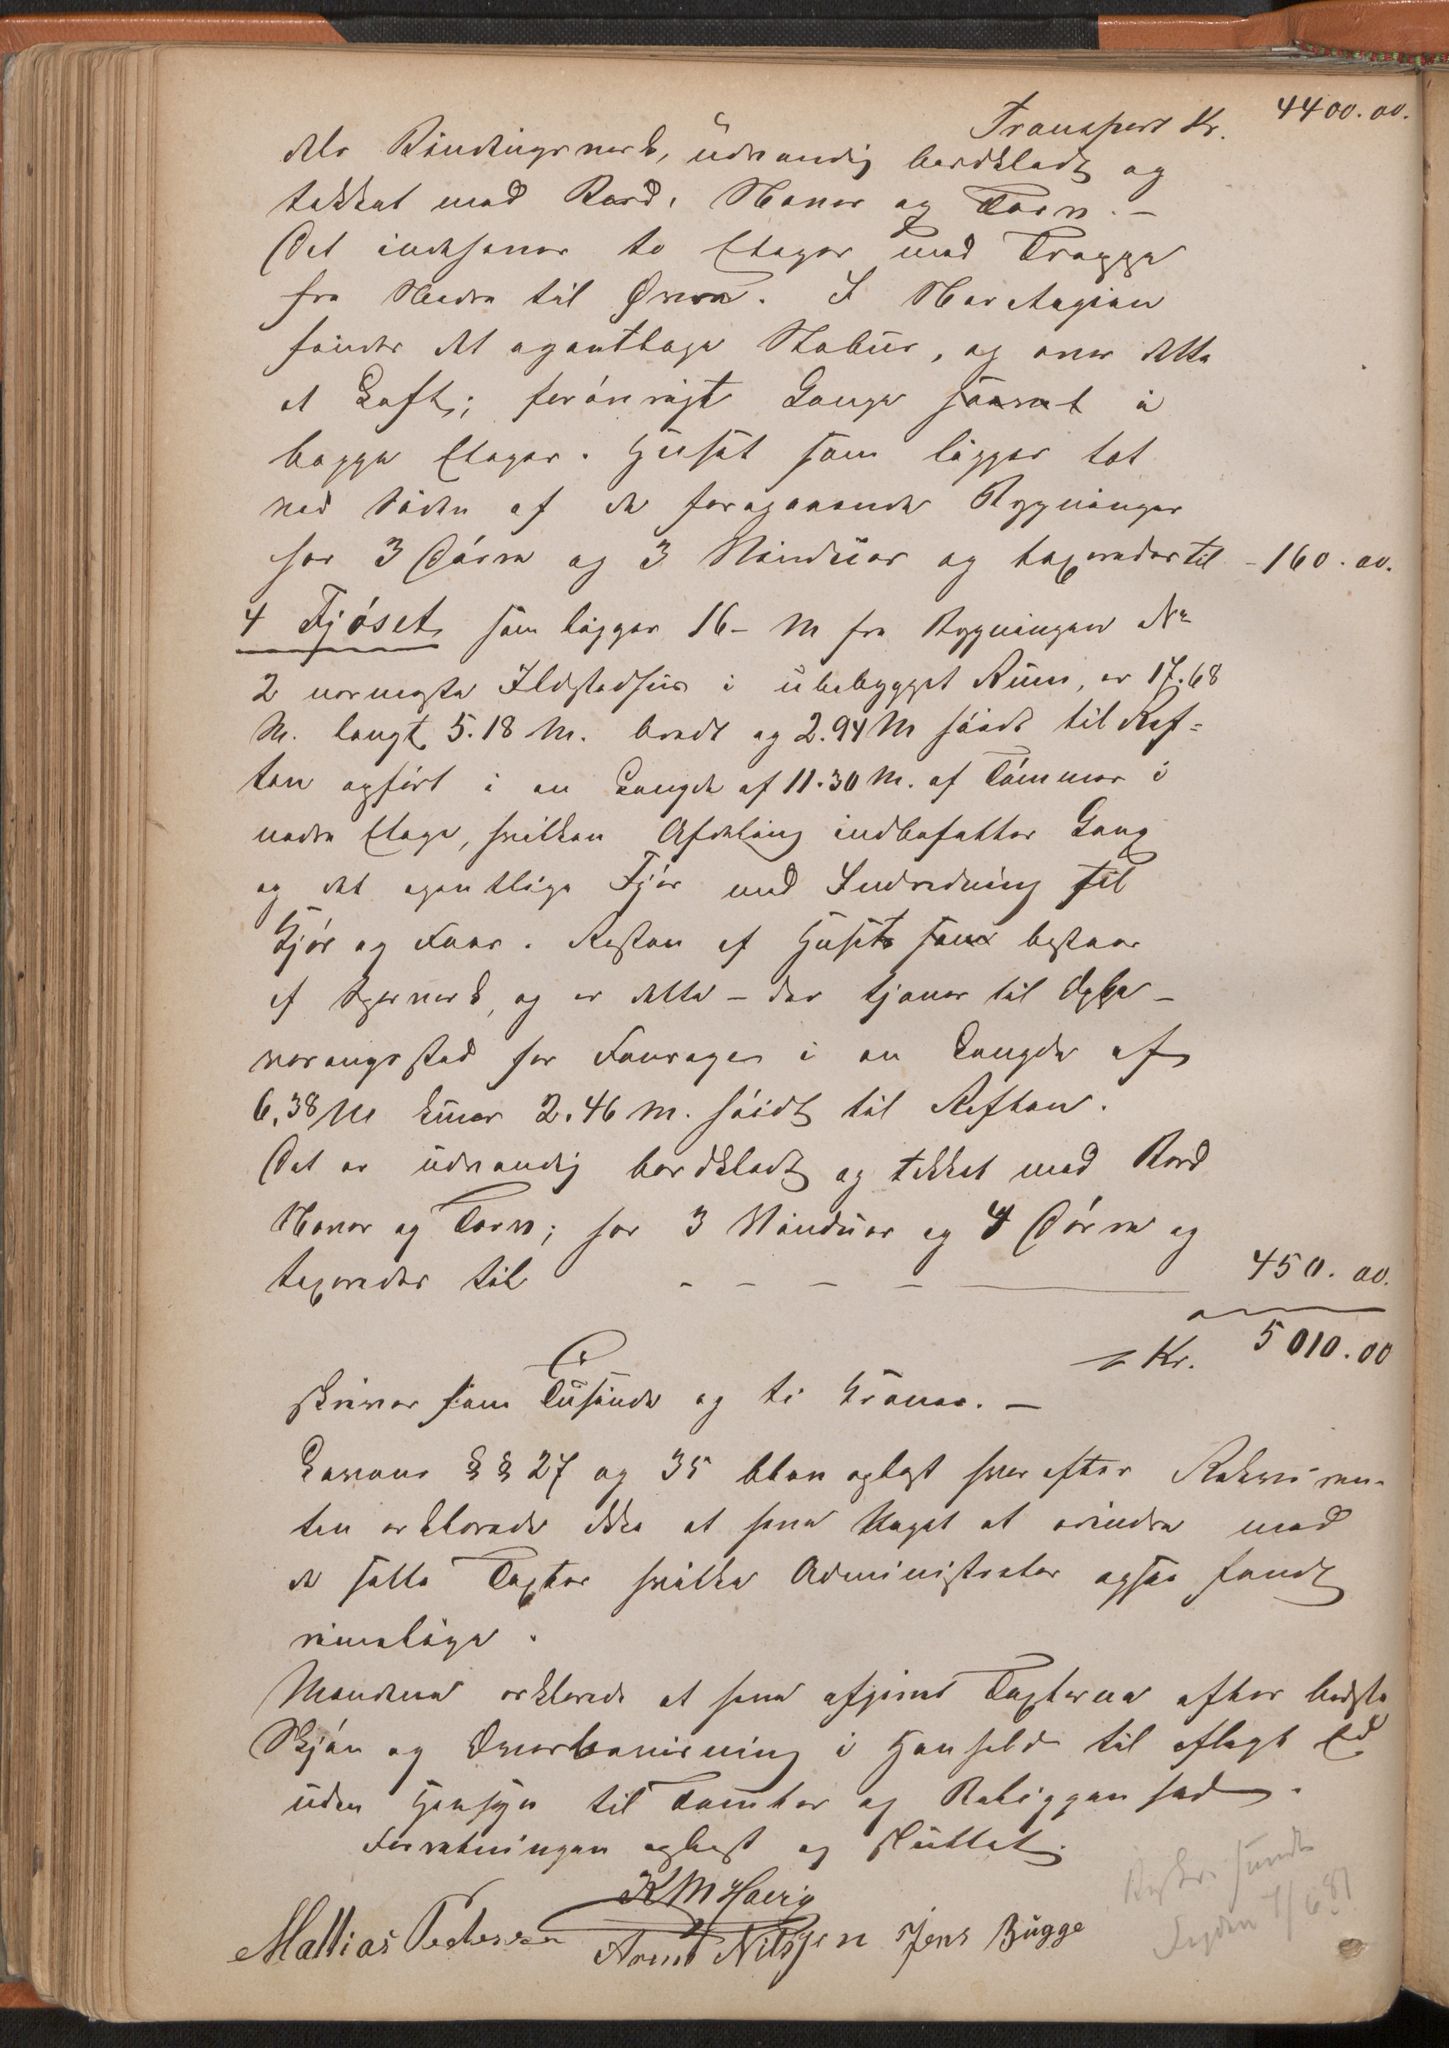 Transport Kr. 4400.00.
dels Bindingsverk, udvendig bordklædt og
tækket med Bord, Næver og Torv. –
Det indehaver to Etager med Trappe
fra Nedre til Øvre. I 1ste Etage
findes det egentlige Stabur, og over dette
et Loft; forøvrigt Gange saavel i
begge Etager. Huset som ligger tæt
ved Siden af de foregaaende Bygninger
har 3 Døre og 3 Vinduer og taxeredes til – 160.00.
4 Fjøset, som ligger 16 – M fra Bygningen No
2 nærmeste Ildstedhus i ubebygget Rum, er 17.68
M. langt, 5.18 M. bredt og 2.94 M høidt til Ræf-
ten opført i en Længde af 11.30 M. af Tømmer i
nedre Etage, hvilken Afdeling indbefatter Gang
og det egentlige Fjøs med Indredning til
Kjør og Faar. Resten af Huset som bestaar
af Skjerverk, og er dette – der tjener til Opbe-
varingssted for Fourage – i en Længde af
6,38 M kuns 2.46 M. høidt til Ræften.
Det er udvendig bordklædt og tækket med Bord
Næver og Torv; har 3 Vinduer og 4 Døre og
taxeredes til – – – – 450.00.
Kr. 5010.00
skriver fem Tusinde og ti Kroner. –
Lovens §§ 27 og 35 blev oplæst hvorefter Rekviren-
ten erklærede ikke at have Noget at erindre mod
de satte Taxter hvilke Administrator ogsaa fandt
rimelige.
Mændene erklærede at have afgivet Taxterne efter bedste
Skjøn og Overbevisning i Henhold til aflagt Ed
uden Hensyn til Tomter og Beliggenhed.
Forretningen oplæst og sluttet.
K M Haerig
Mathias Pedersen Arnt Nilssen Jens Bugge
7/6 81